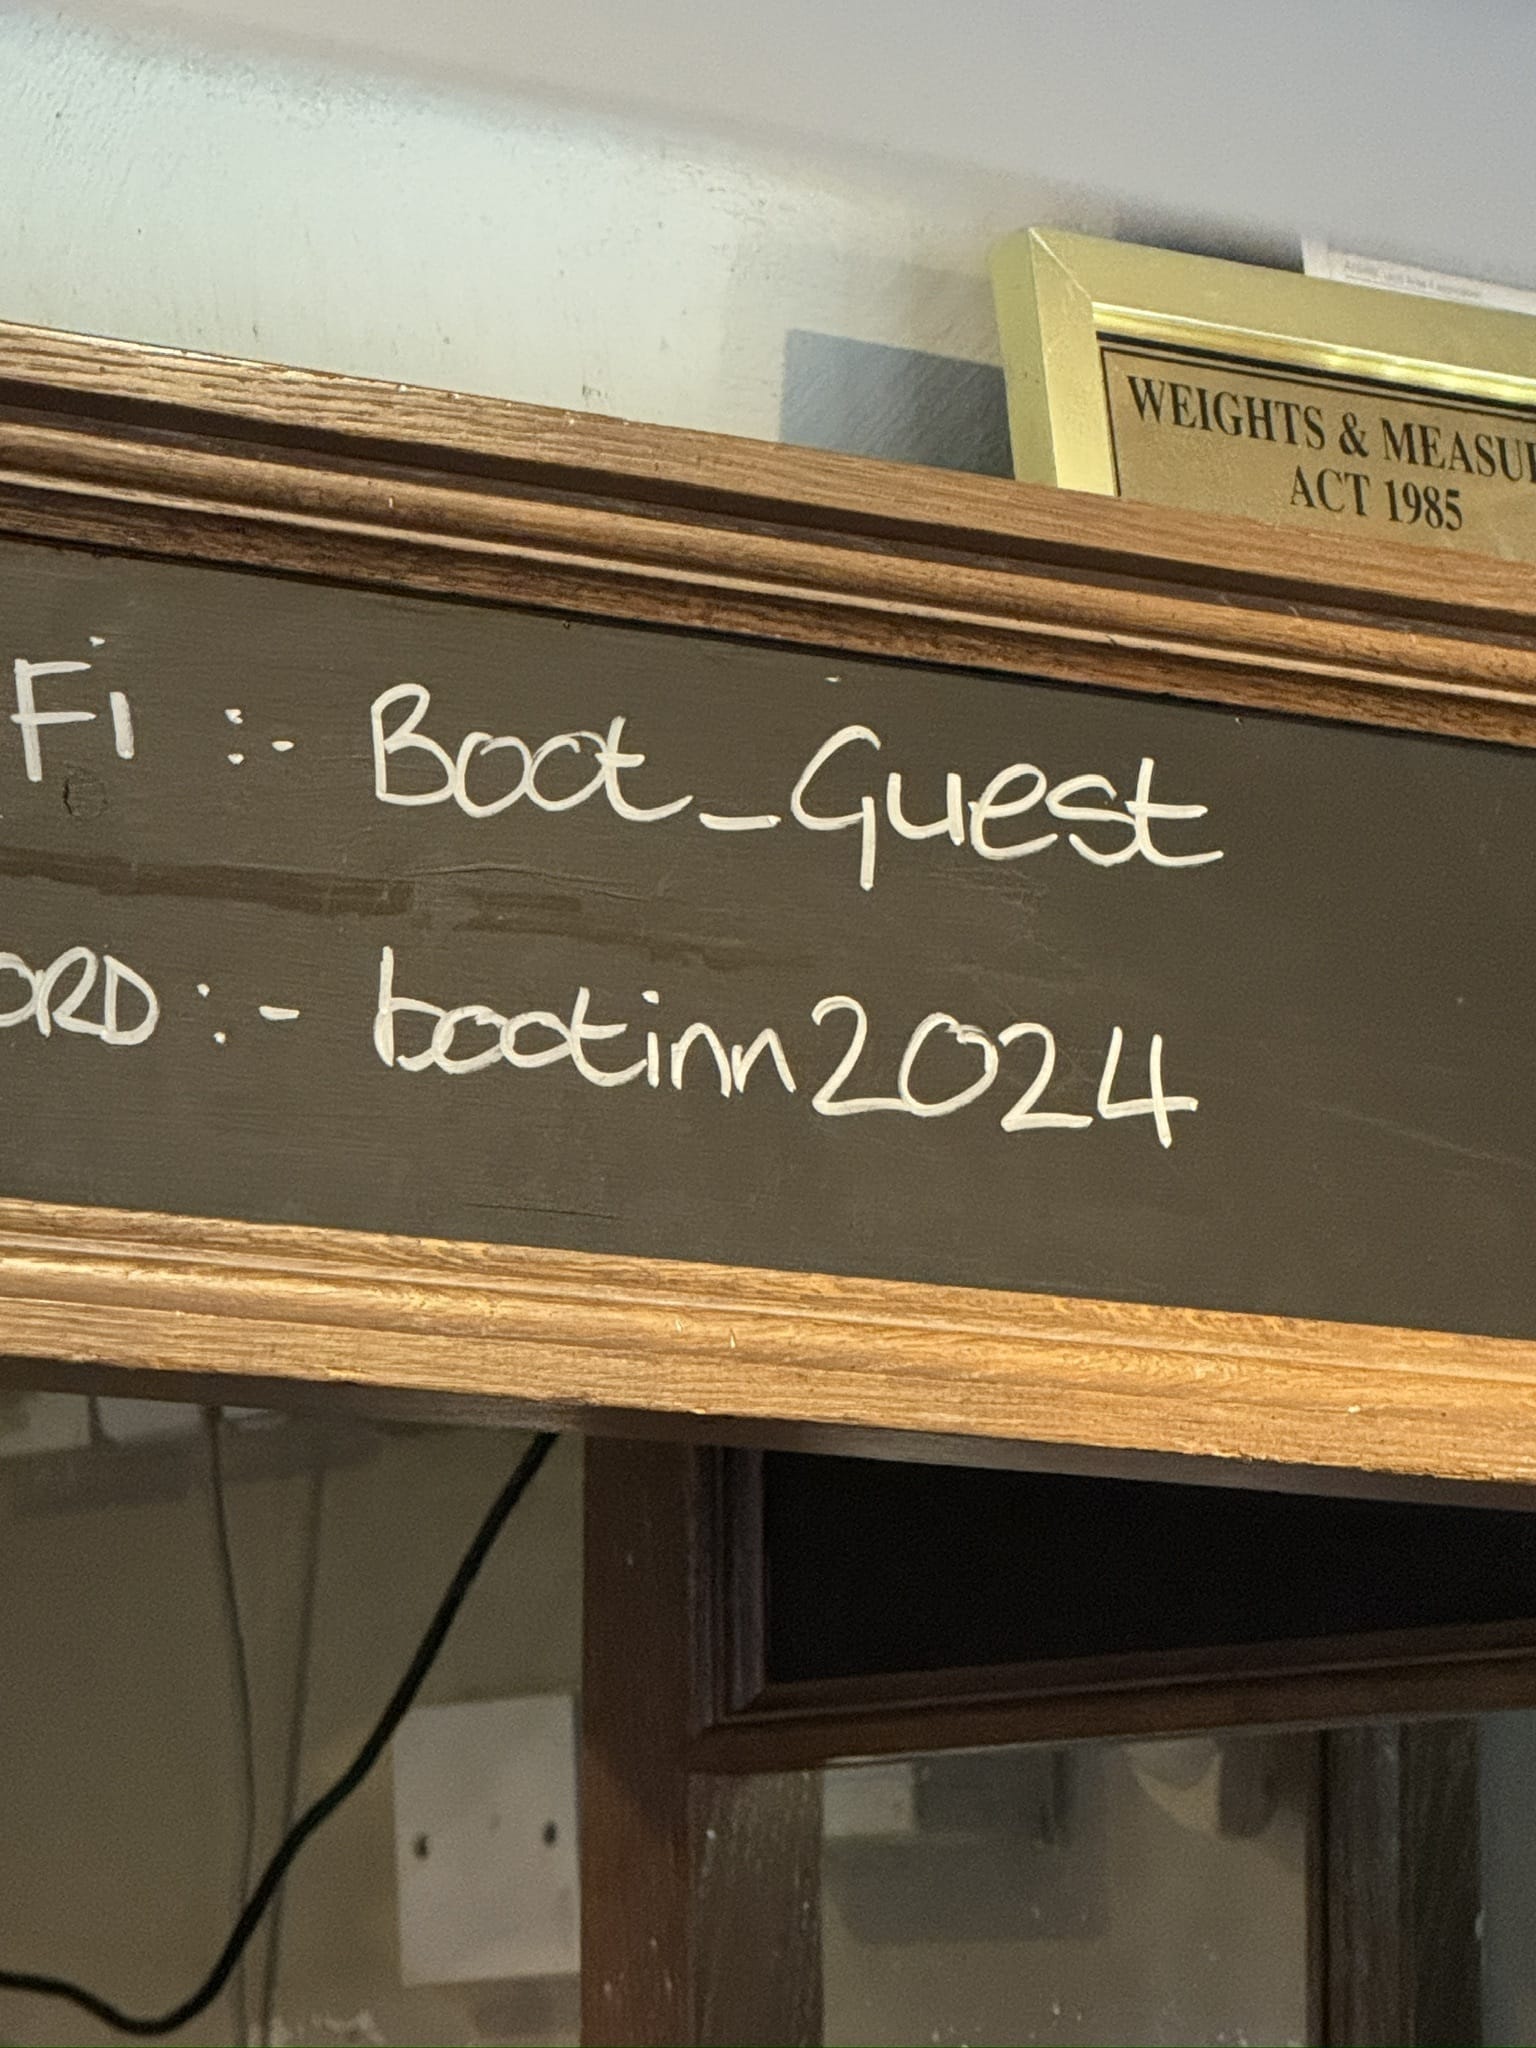 WEIGHTS & MEASU
ACT 1985
Fi :- Boot_Guest
ORD :- bootinn2024